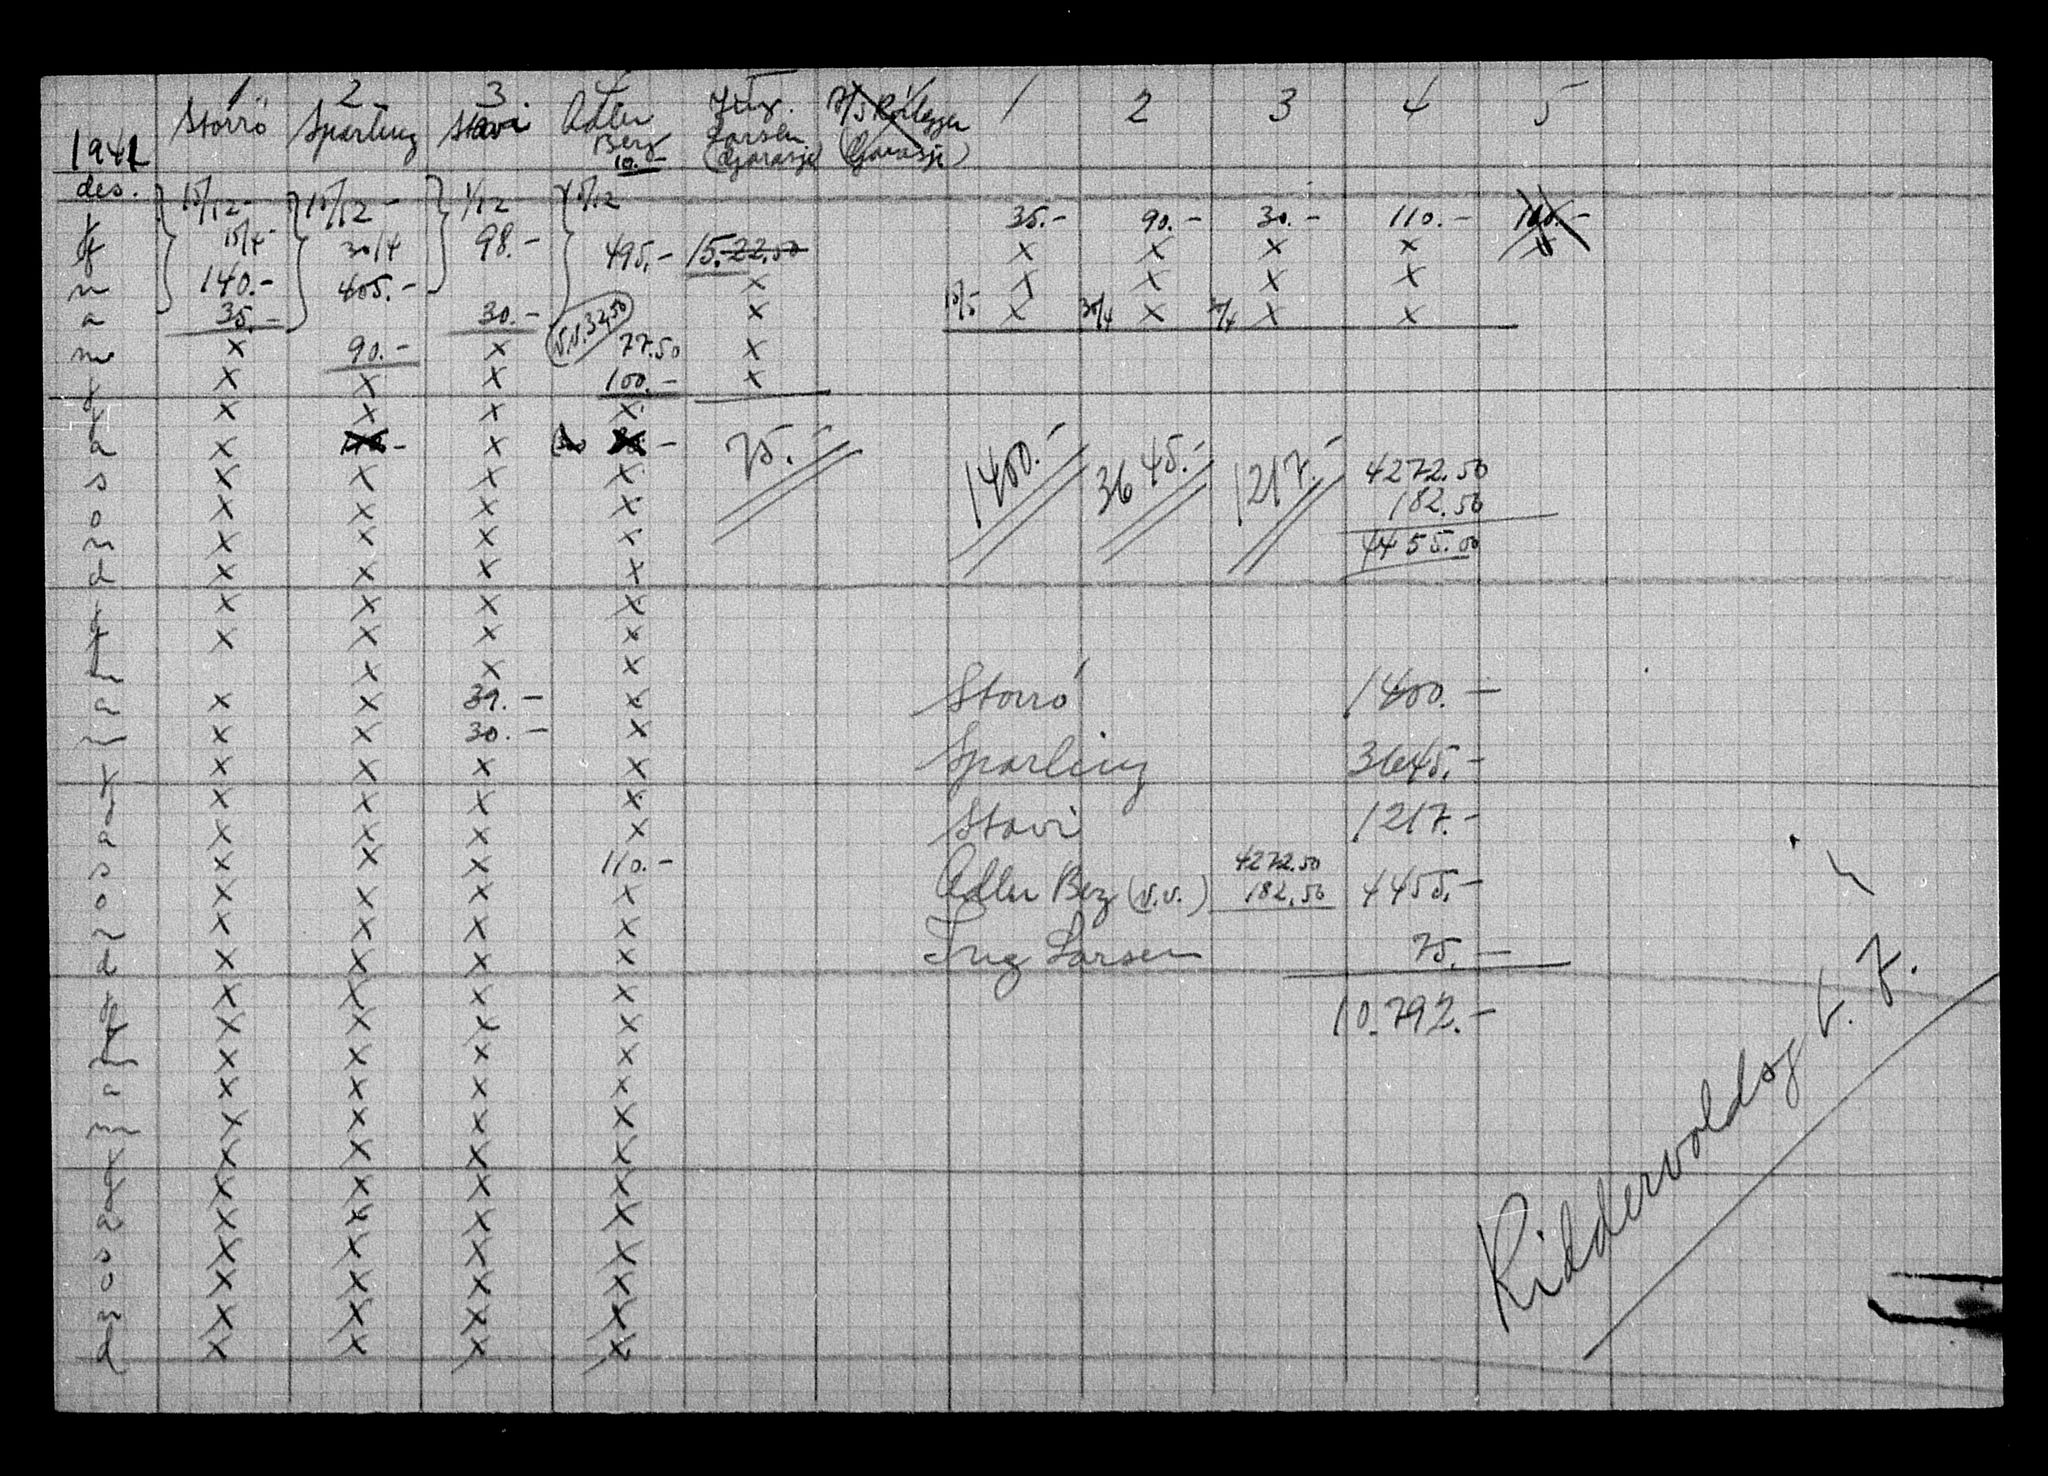 1 2 3 4 5 1 2 3 4 5
Storrö Sparling Stavi Adler Berg 10.- Ing. Larsen (Garasje) (Garasje)
1941
des. 15/12- 15/12- 1/12 15/12
j 35.- 90.- 30.- 110.- 100.-
f 15/4 30/4 98.- 495.- 15.- 22.50 x x x x x
m 140.- 405.- x x x x x
a 35.- 30.- x 15/5 x 30/4 x 30/4 x x
m x 90.- x (v.v. 32,50) 77.50 x
j x x x 100.- x
j x x x x
a x x 75.- 1400.- 3645.- 1217.- 4272.50
s x x x x 182.50
o x x x x 4455.00
n x x x x
d x x x x
j x x x x
f x x x x
m x x x
a x x 39.- x Storrö 1400.-
m x x 30.- x
j x x x x Sparling 3645.-
j x x x x
a x x x x Stavi 1217.-
s x x x 110.- 4272.50
o x x x x Adler Berg (v.v.) 182,50 4455.-
n x x x x
d x x x x Ing Larsen 75.-
j x x x x
f x x x x 10.792.-
m x x x x
a x x x x
m x x x x
j x x x x
j x x x x
a x x x x
s x x x x
o x x x x
n x x x x
d x x x x
Riddervoldsg 7.